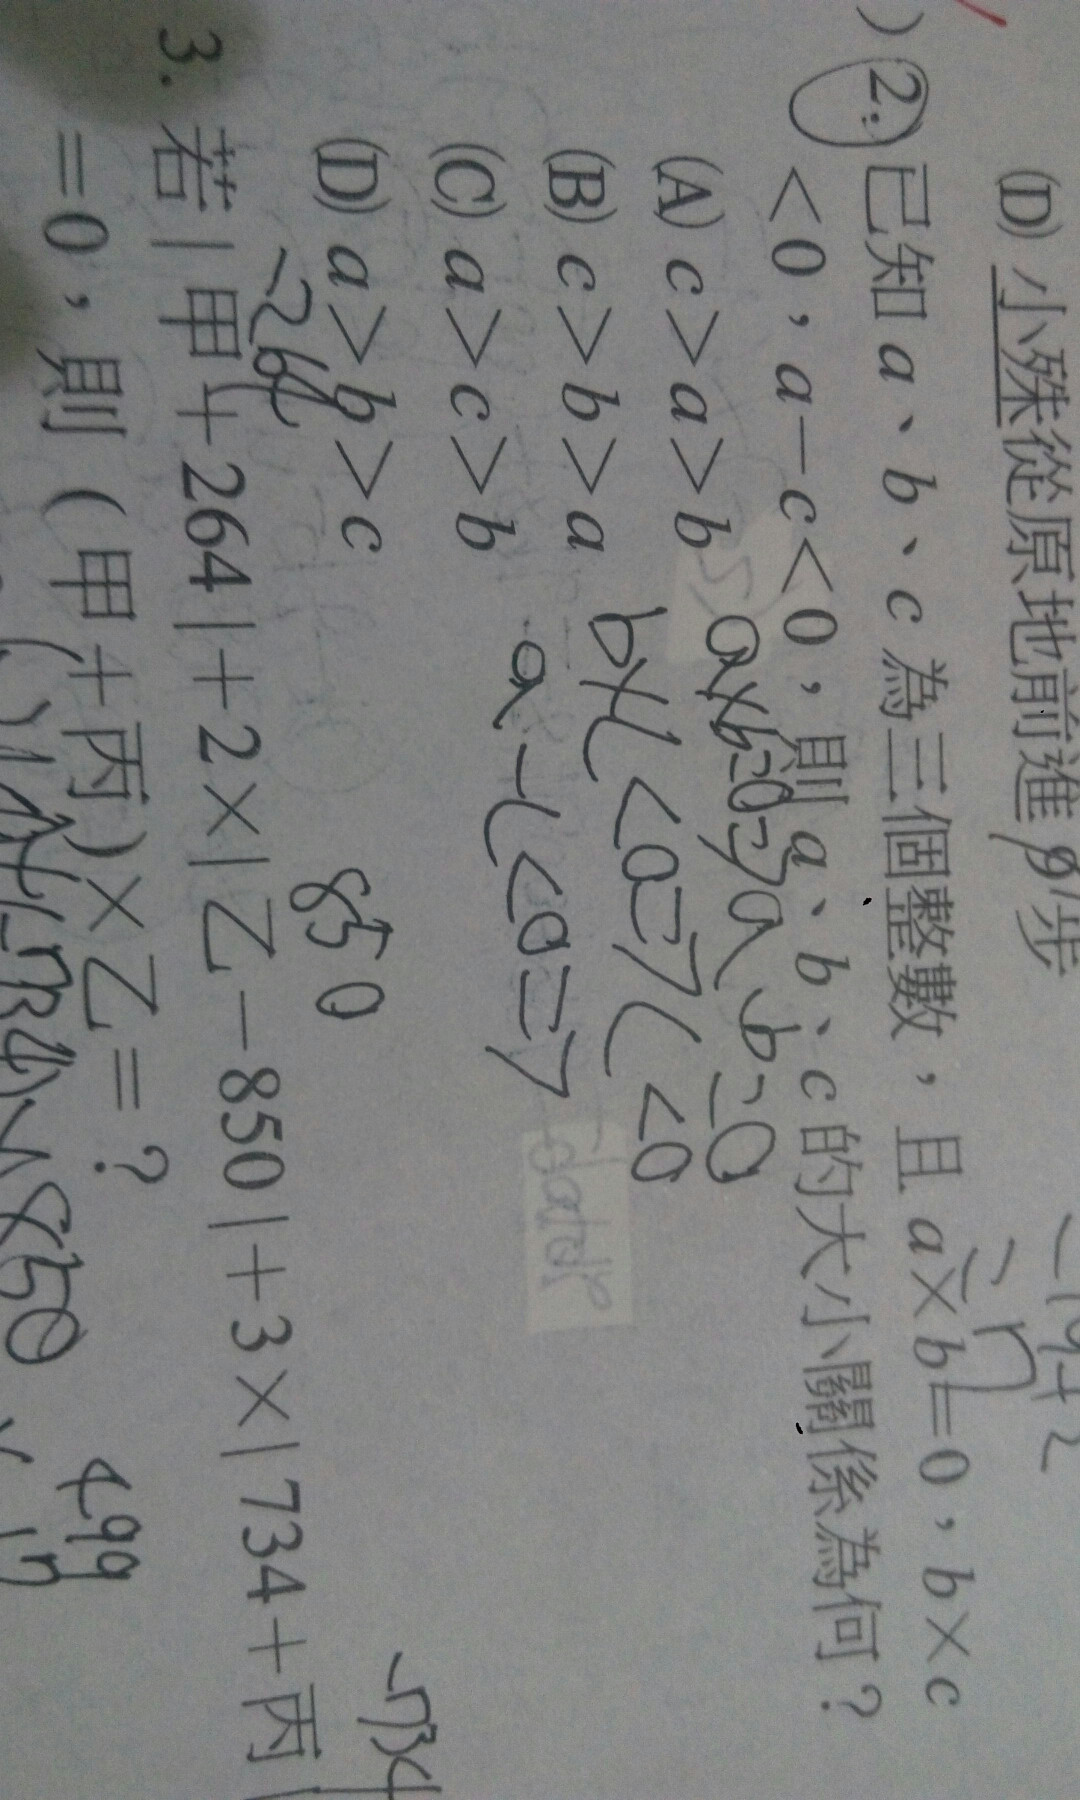 (D) 小殊從原地前進 9 步
2. 已知 a、b、c 為三個整數，且 a×b=0，b×c
<0，a-c<0，則 a、b、c 的大小關係為何？
(A) c>a>b
(B) c>b>a
(C) a>c>b
(D) a>b>c
a×b=0=>a、b=0
b×c<0=>c<0
a-c<0=>
-264
850
-734
3. 若|甲+264|+2×|乙-850|+3×|734+丙|
=0，則(甲+丙)×乙=？
499